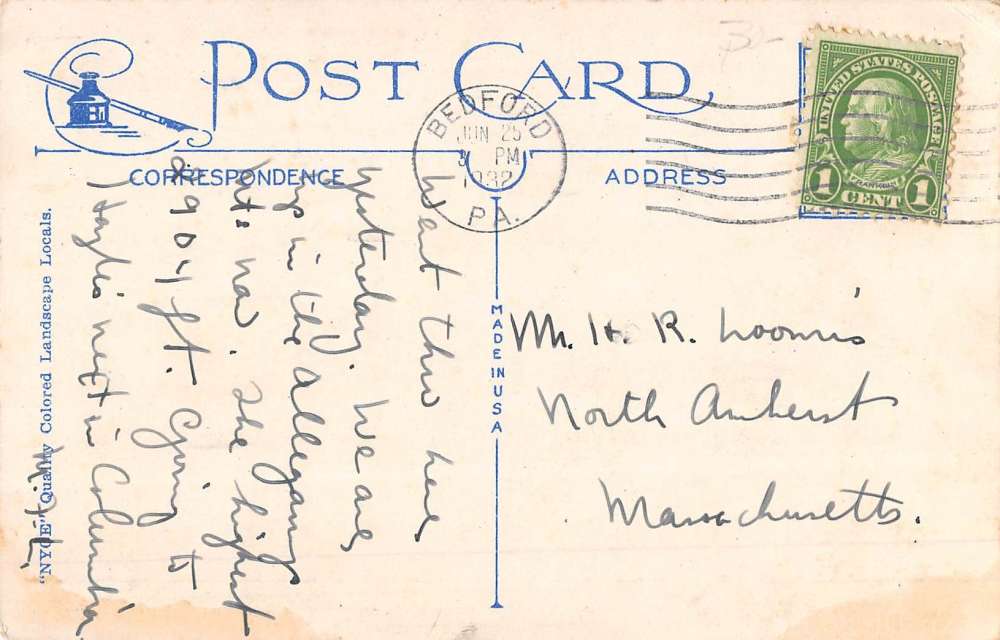 POST CARD
BEDFORD
JUN 25
PM
1932
PA.
UNITED STATES POSTAGE
FRANKLIN
1 CENT 1
CORRESPONDENCE
ADDRESS
Went thru here
yesterday. We are
up in the Allegany
Mts. now. The highest
2904 ft. Going to
Hayli's next in Columbia
"NYCE" Quality Colored Landscape Locals.
MADE IN USA
Mr. H. R. Loomis
North Amherst
Massachusetts.